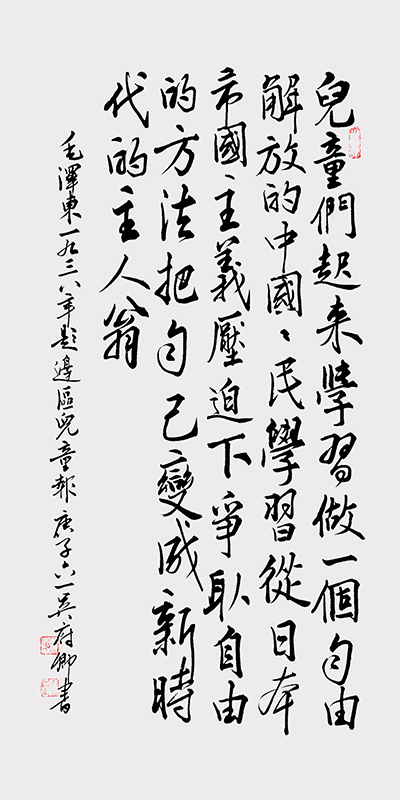 兒童們起来學習做一個自由
解放的中國〻民學習從日本
帝國主義壓迫下爭取自由
的方法把自己變成新時
代的主人翁
毛澤東一九三八年題邊區兒童報 庚子六一吴府卿書